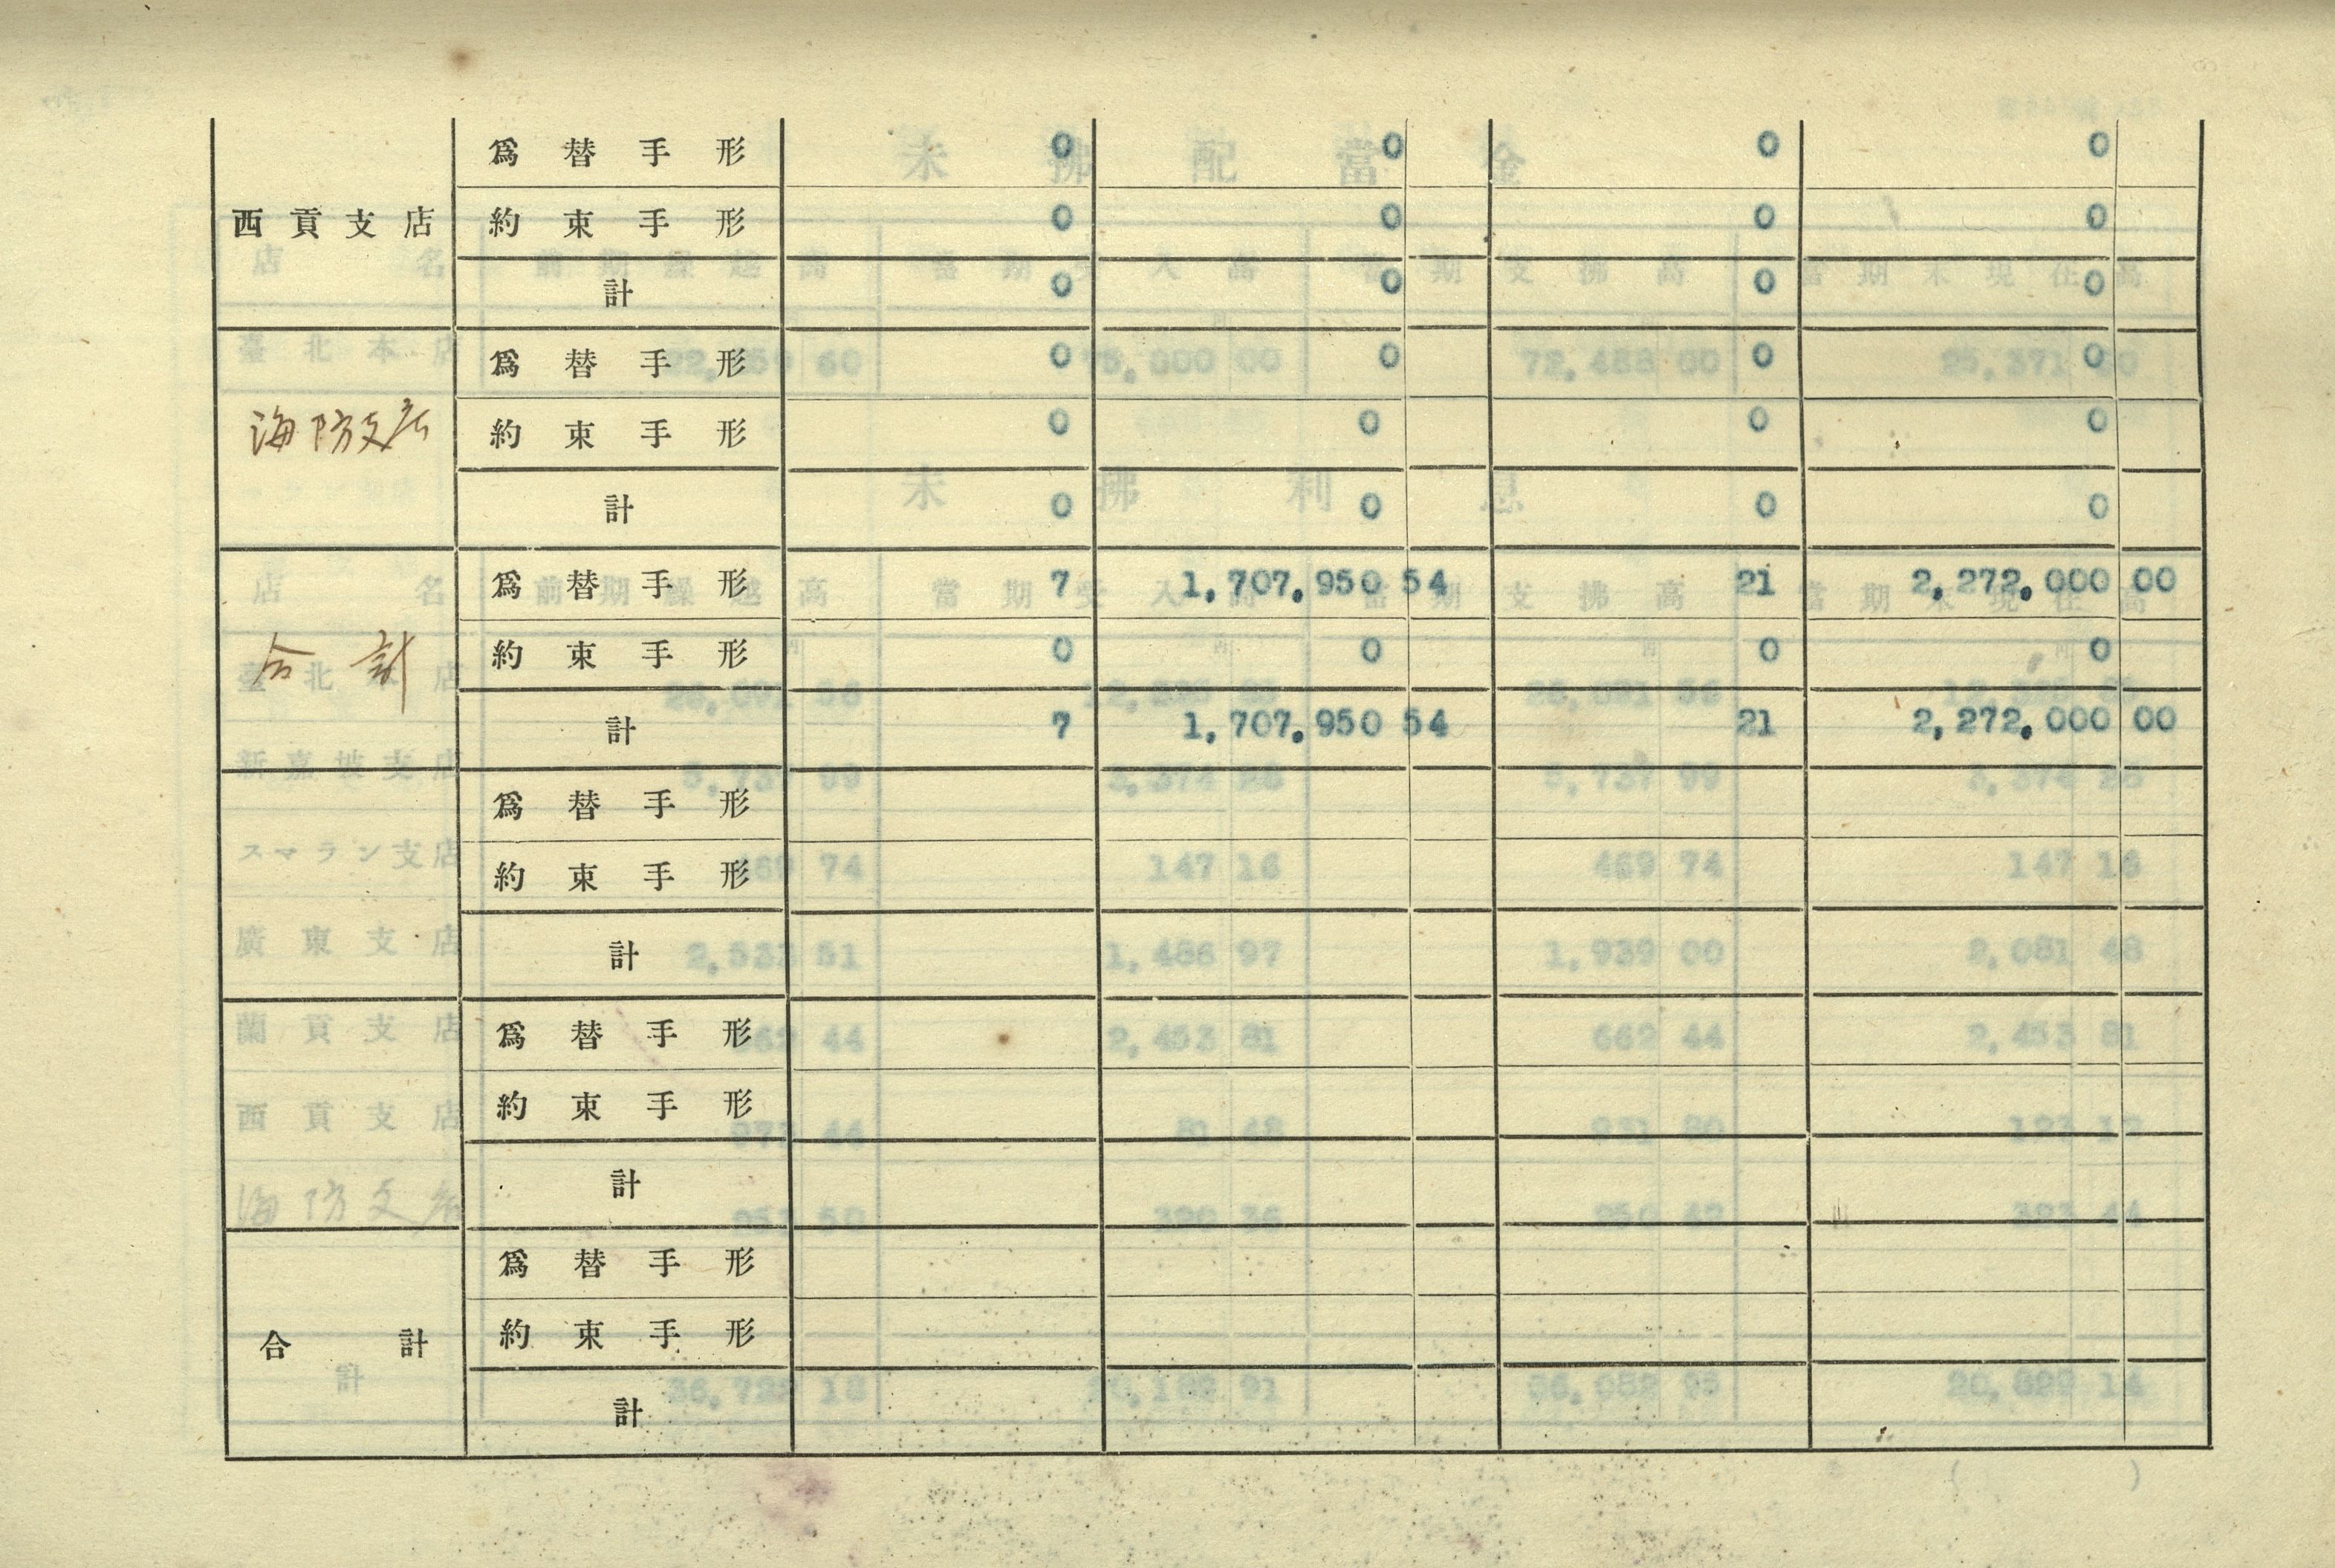 爲替手形 0 0 0 0
西貢支店 約束手形 0 0 0 0
計 0 0 0 0
爲替手形 0 0 0 0
海防支店 約束手形 0 0 0 0
計 0 0 0 0
爲替手形 7 1,707,950 54 21 2,272,000 00
合計 約束手形 0 0 0 0
計 7 1,707,950 54 21 2,272,000 00
爲替手形
約束手形
計
爲替手形
約束手形
計
爲替手形
合計 約束手形
計